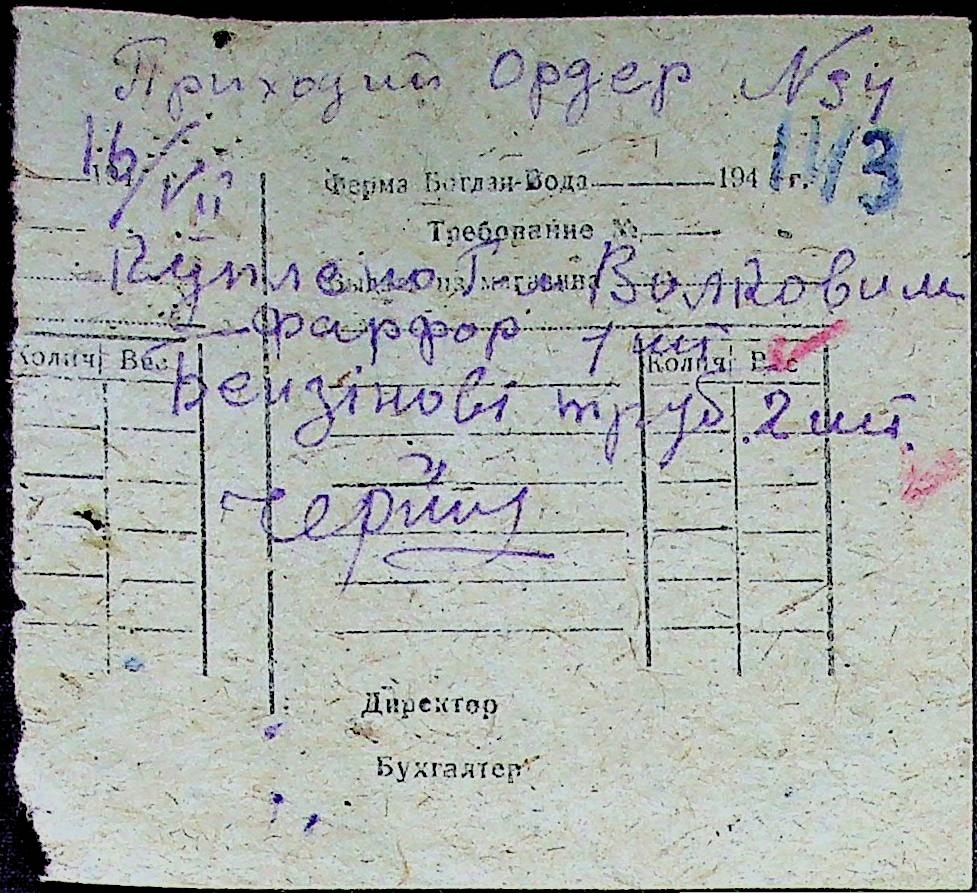 Приходий Ордер N 34
16/VII
143
Ферма Богдан-Вода 194 г.
Требование №
Куплено Г. Волковим
Выдать из магазина
фарфор 1 шт
Колич Вес Колич Вес
Бензінові труб. 2 шт.
Директор
Бухгалтер